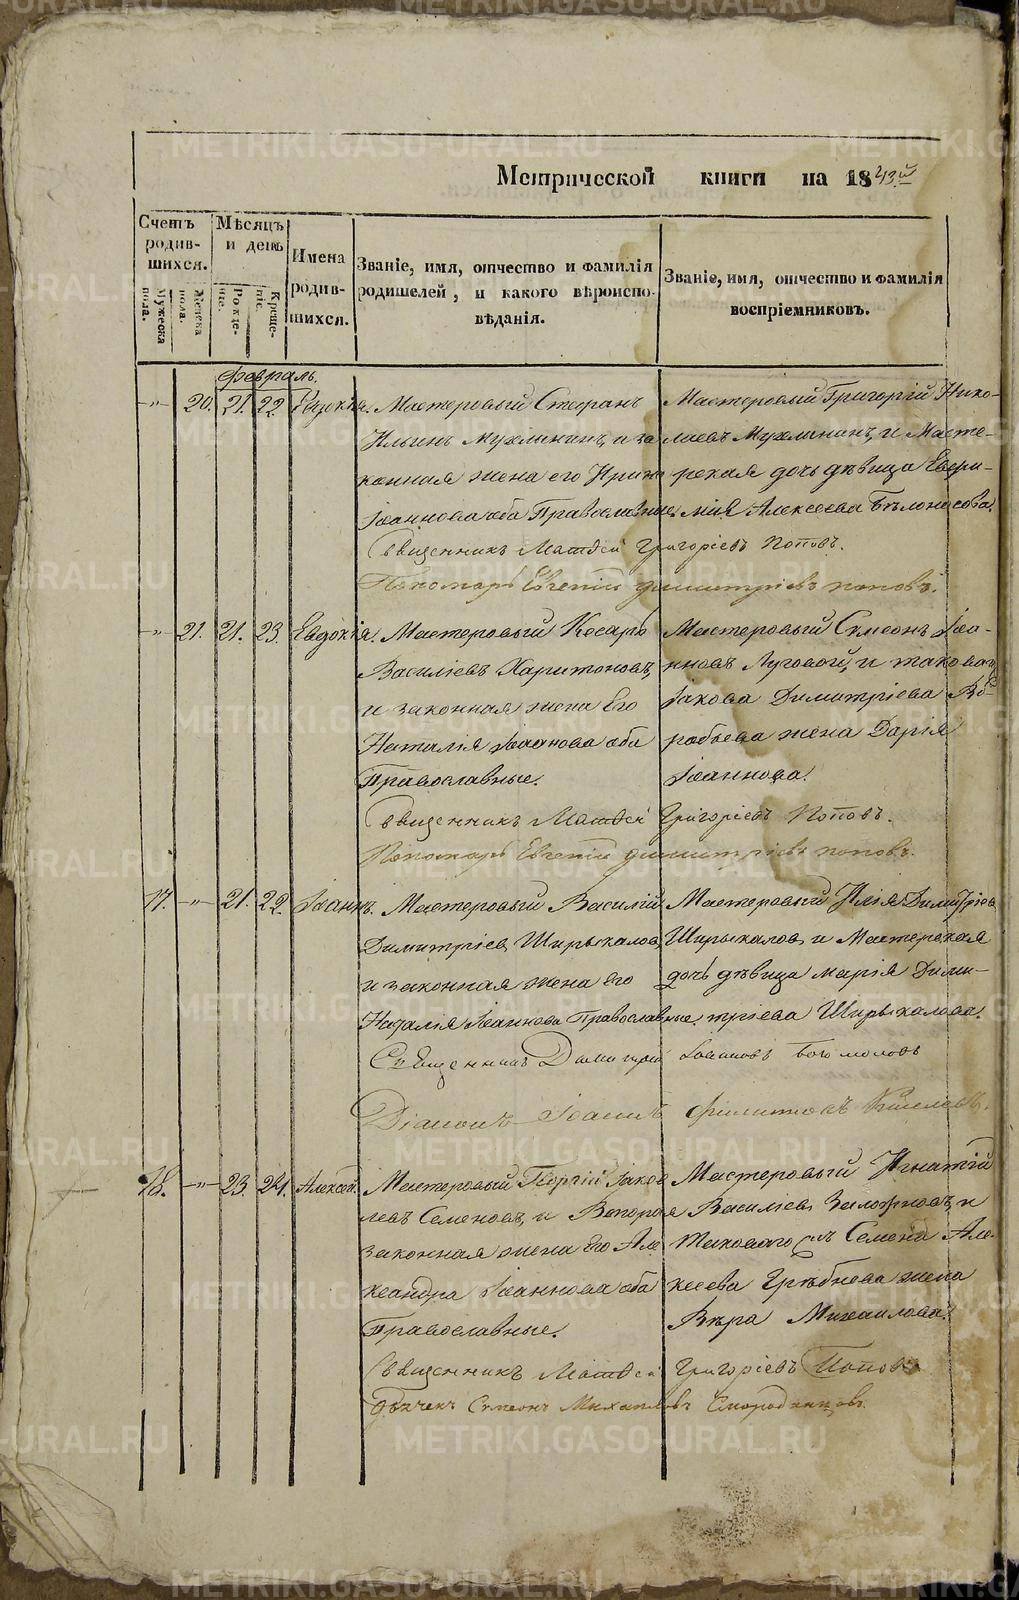 Метрической книги на 1843й
Счетъ родившихся.
Мужеска пола.
Женска пола.
Мѣсяцъ и день
Рождение.
Крещеніе.
Имена родившихся.
Званіе, имя, отчество и фамилія родителей, и какого вѣроисповѣданія.
Званіе, имя, отчество и фамилія воспріемниковъ.
Февраль.
-„- 20. 21. 22. Мастеровый Стефанъ
Ильинъ Мухлининъ, и за
конная жена его Ирина
Іоаннова оба Православные.
Мастеровый Григорій Нико-
лаевъ Мухлининъ, и Масте-
рская дочь дѣвица Евфи-
мия Алексеева Бѣлоносова.
Священникъ Матѳей Григоріевъ Поповъ.
Пономарь Евгеній Димитріевъ Поповъ.
-„- 21. 21. 23. Евдокія. Мастеровый Кесарь
Василіевъ Харитоновъ,
и законная жена Его
Наталія Іоаннова оба
Православные.
Мастеровый Симеонъ Іоа-
нновъ Луговой, и таковаго
Іакова Димитріева Во-
робьева жена Дарія
Іоаннова.
Священникъ Матѳей Григоріевъ Поповъ.
Пономарь Евгеній Димитріевъ Поповъ.
17. -„- 21. 22. Іоаннъ. Мастеровый Василій
Димитріев, Ширыкалов,
и законная жена Его
Наталія Іоаннова Православные.
Мастеровый Илія Димитріев,
Ширыкалов, и Мастерская
дочь дѣвица Марія Дими-
тріева Ширыкалова.
Священникъ Димитрій Іоанновъ Богомоловъ
Діаконъ Іоаннъ
18. -„- 23. 24. Алексѣй. Мастеровый Георгій Іаков
левъ Семеновъ, и Вторая
законная жена Его Але
ксандра Іоаннова оба
Православные.
Мастеровый Игнатій
Василіев, и
таковаго Семена Але-
ксеева Грѣбнева жена
Вѣра Михаилова.
Священникъ Матѳей Григоріевъ Поповъ
Дьячек Симеонъ Михаиловъ Смородинцовъ.
METRIKI.GASO-URAL.RU